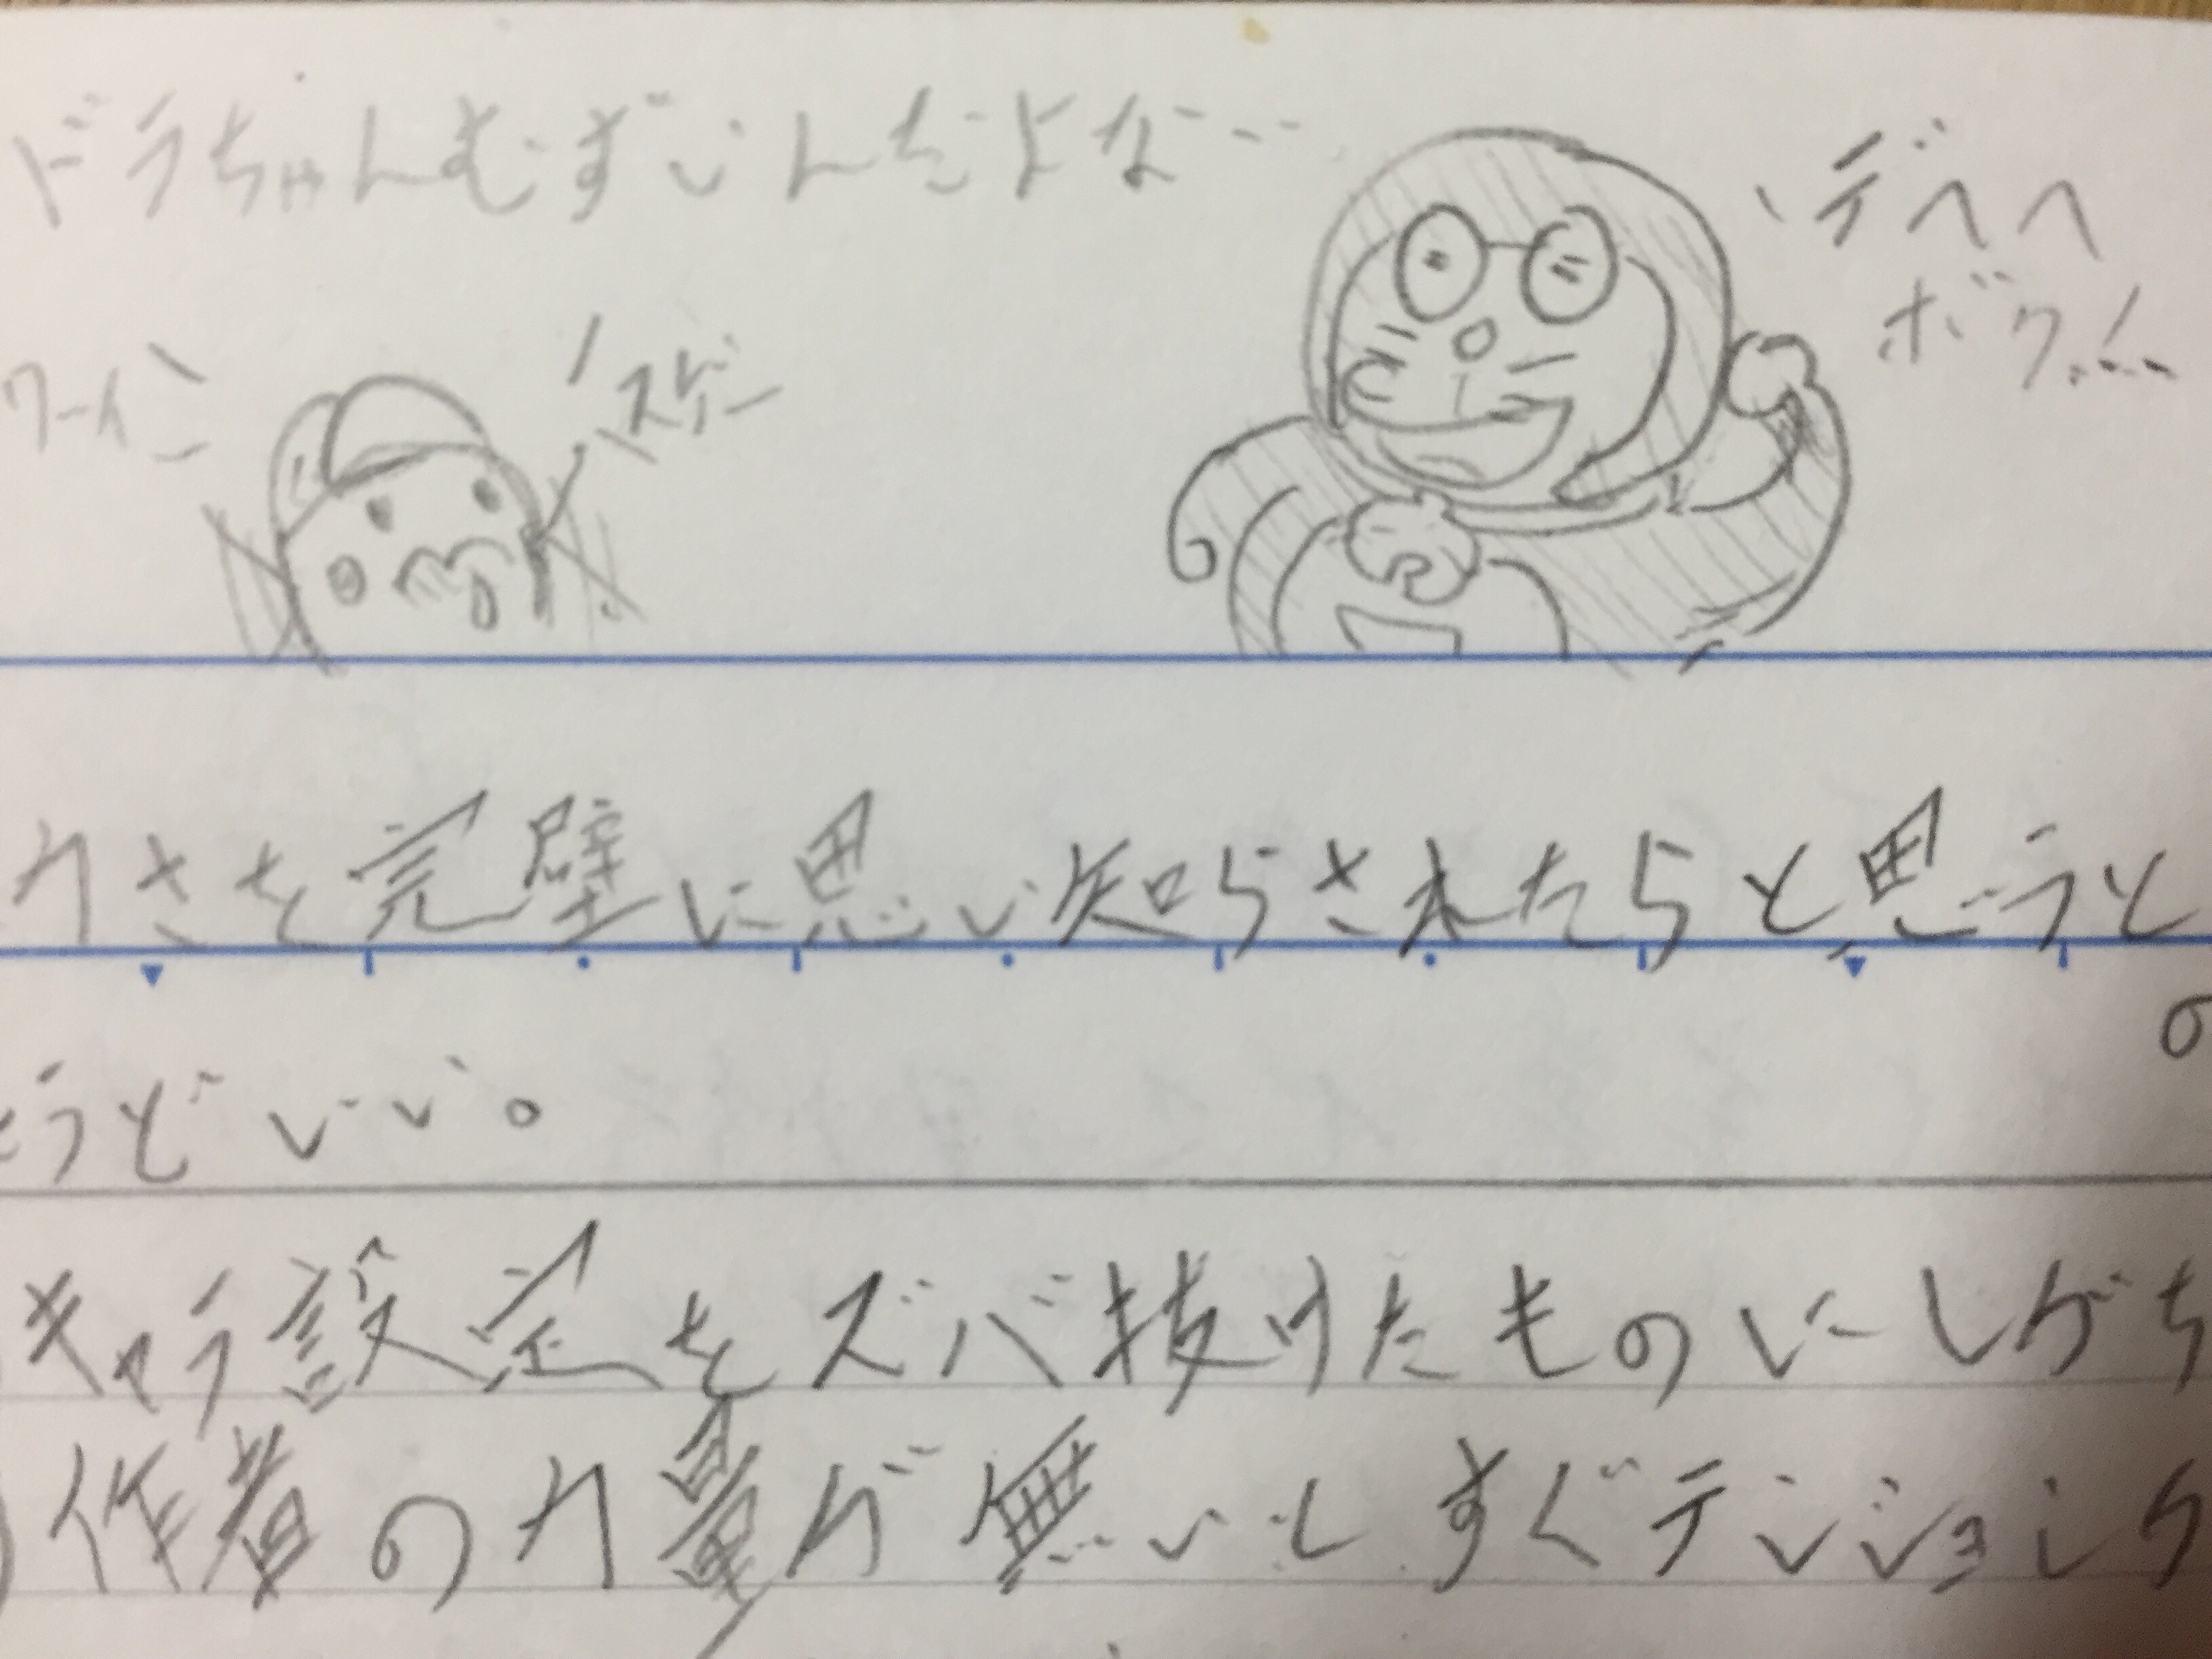 ドラちゃんむずいんだよな…
デヘヘ
ボク…
ワーイ
スゲー
さを完璧に思い知らされたらと思うと
うどいい。
の
キャラ設定をズバ抜けたものにしがち
作者の力量が無いしすぐテンション